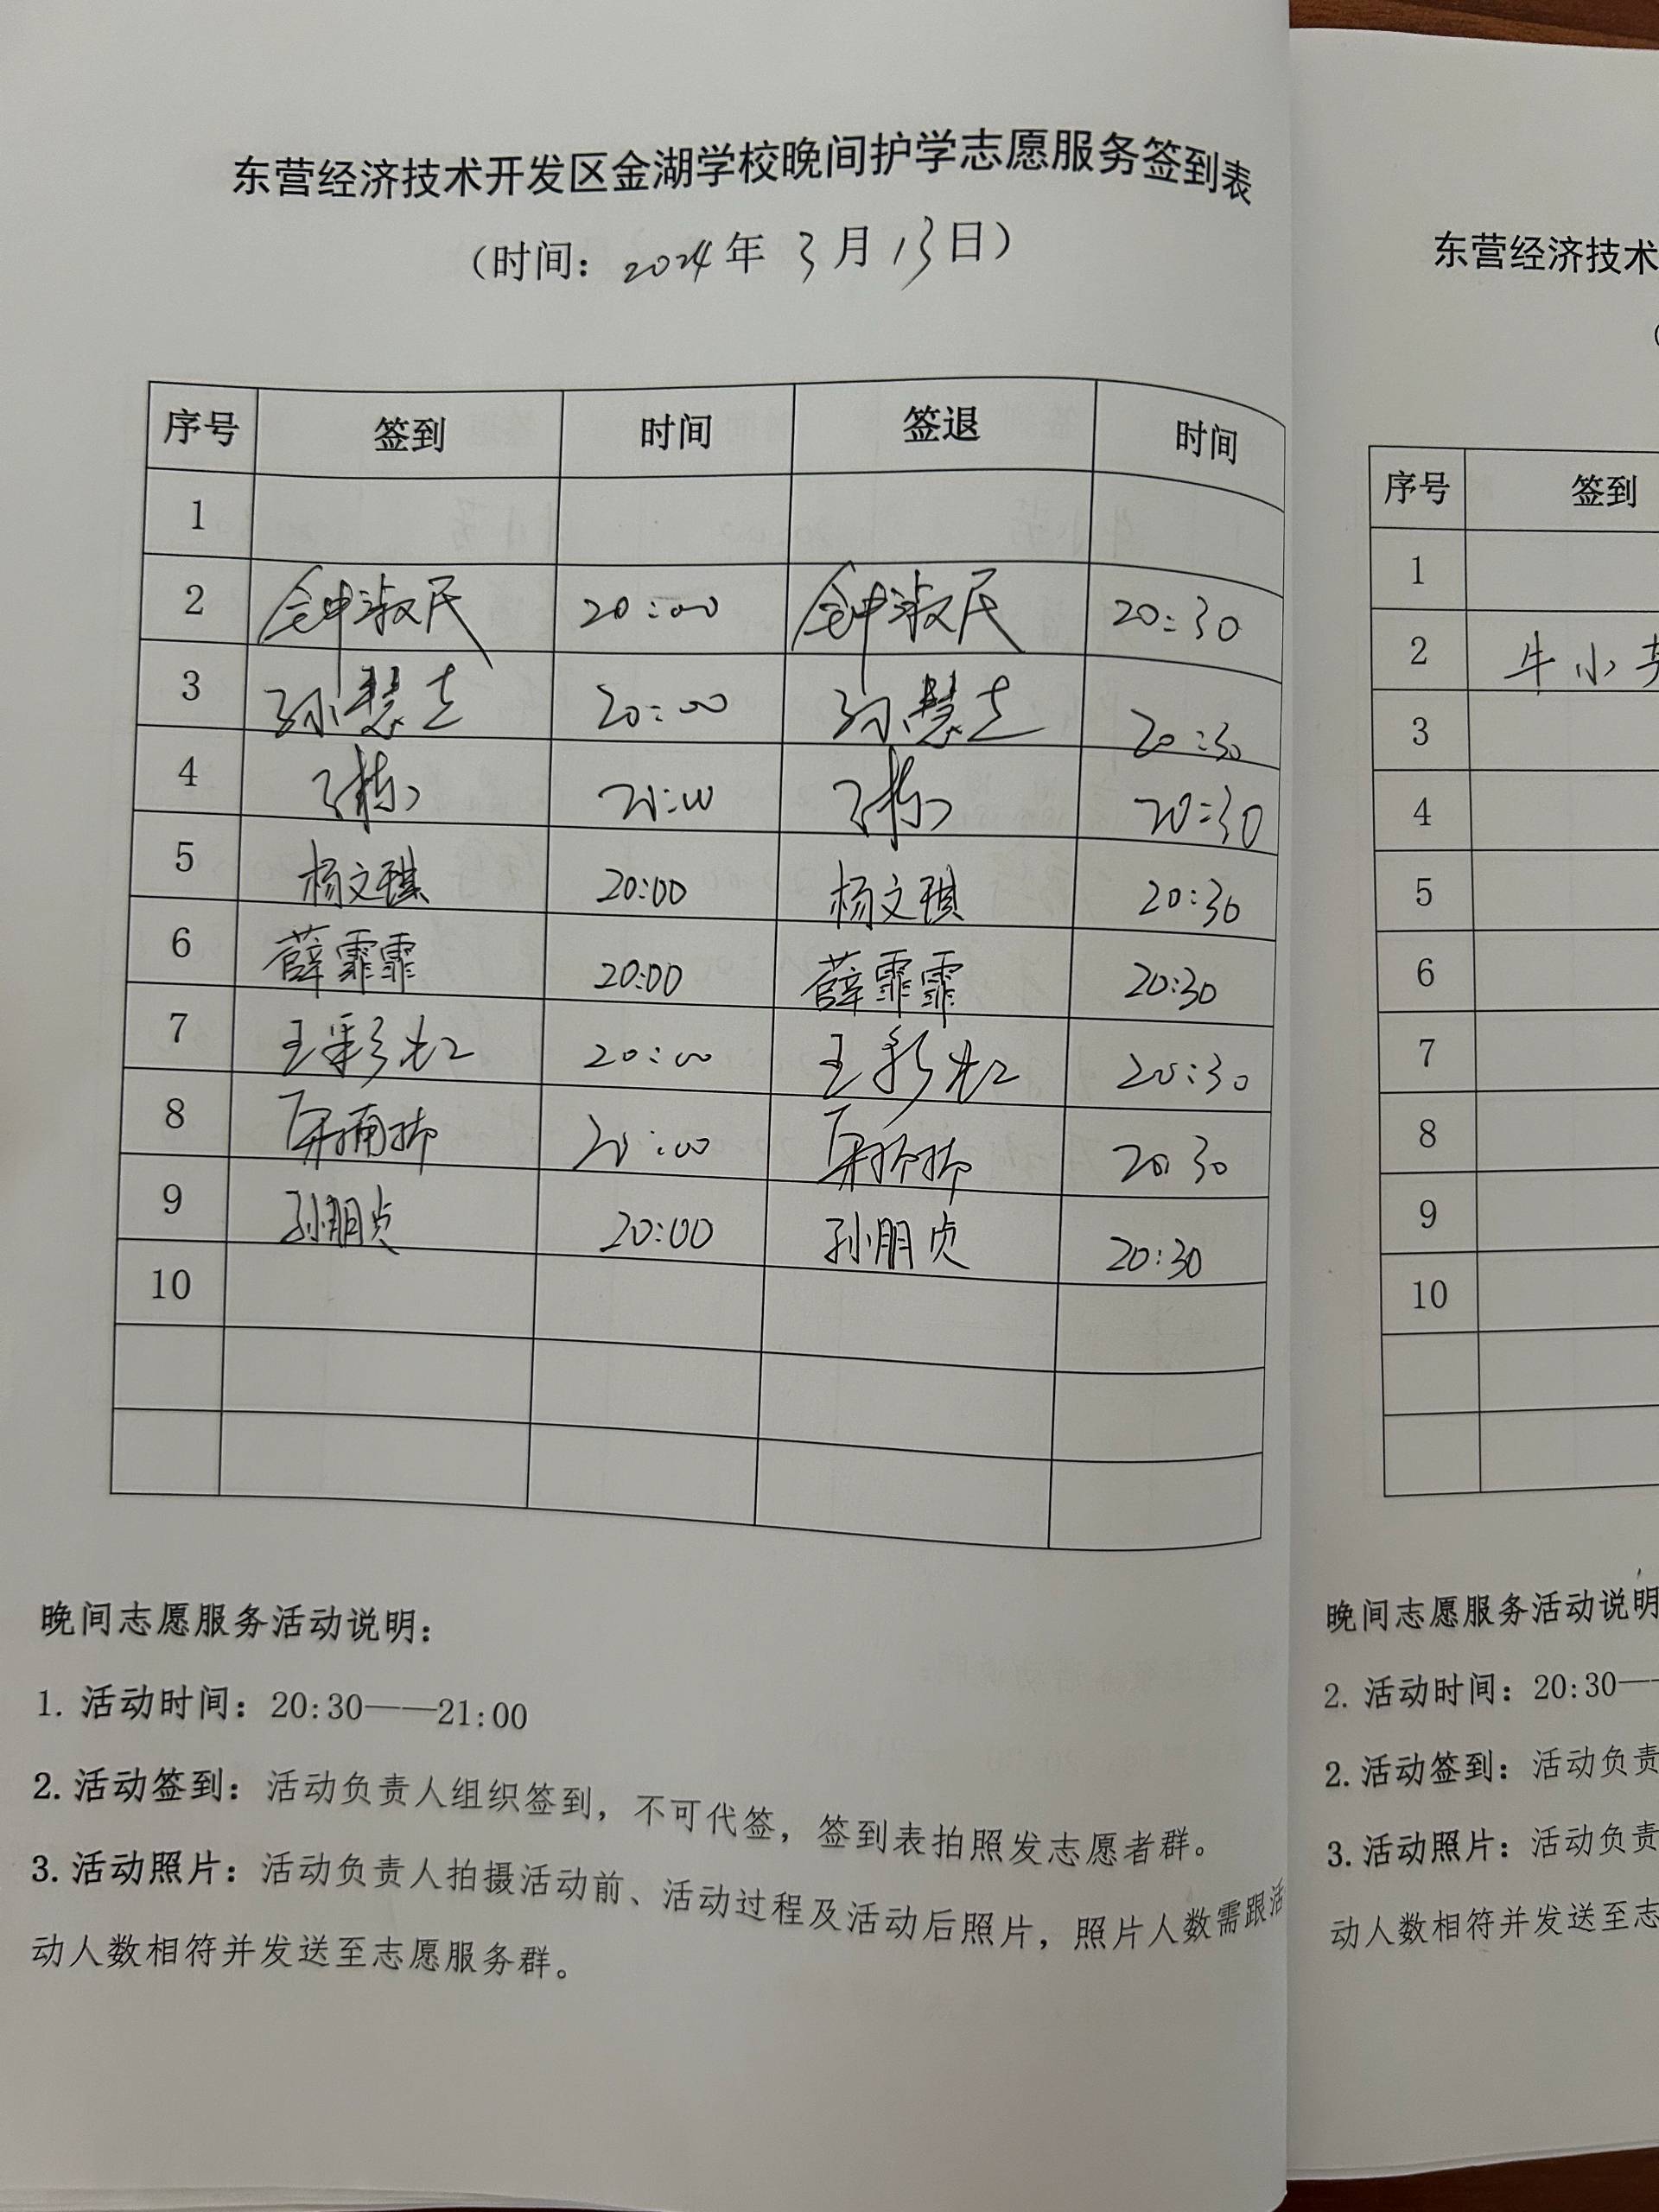 东营经济技术开发区金湖学校晚间护学志愿服务签到表
（时间：2024年3月13日）
序号 签到 时间 签退 时间
1
2 钟淑民 20:00 钟淑民 20:30
3 孙慧 20:00 孙慧 20:30
4 20:00 20:30
5 杨文琪 20:00 杨文琪 20:30
6 薛霏霏 20:00 薛霏霏 20:30
7 王彩虹 20:00 王彩虹 20:30
8 20:00 20 30
9 孙朋贞 20:00 孙朋贞 20:30
10
晚间志愿服务活动说明：
1. 活动时间：20:30——21:00
2. 活动签到：活动负责人组织签到，不可代签，签到表拍照发志愿者群。
3. 活动照片：活动负责人拍摄活动前、活动过程及活动后照片，照片人数需跟活
动人数相符并发送至志愿服务群。
东营经济技术
（
序号 签到
1
2 牛小
3
4
5
6
7
8
9
10
晚间志愿服务活动说明
2. 活动时间：20:30—
2. 活动签到：活动负责
3. 活动照片：活动负责
动人数相符并发送至志